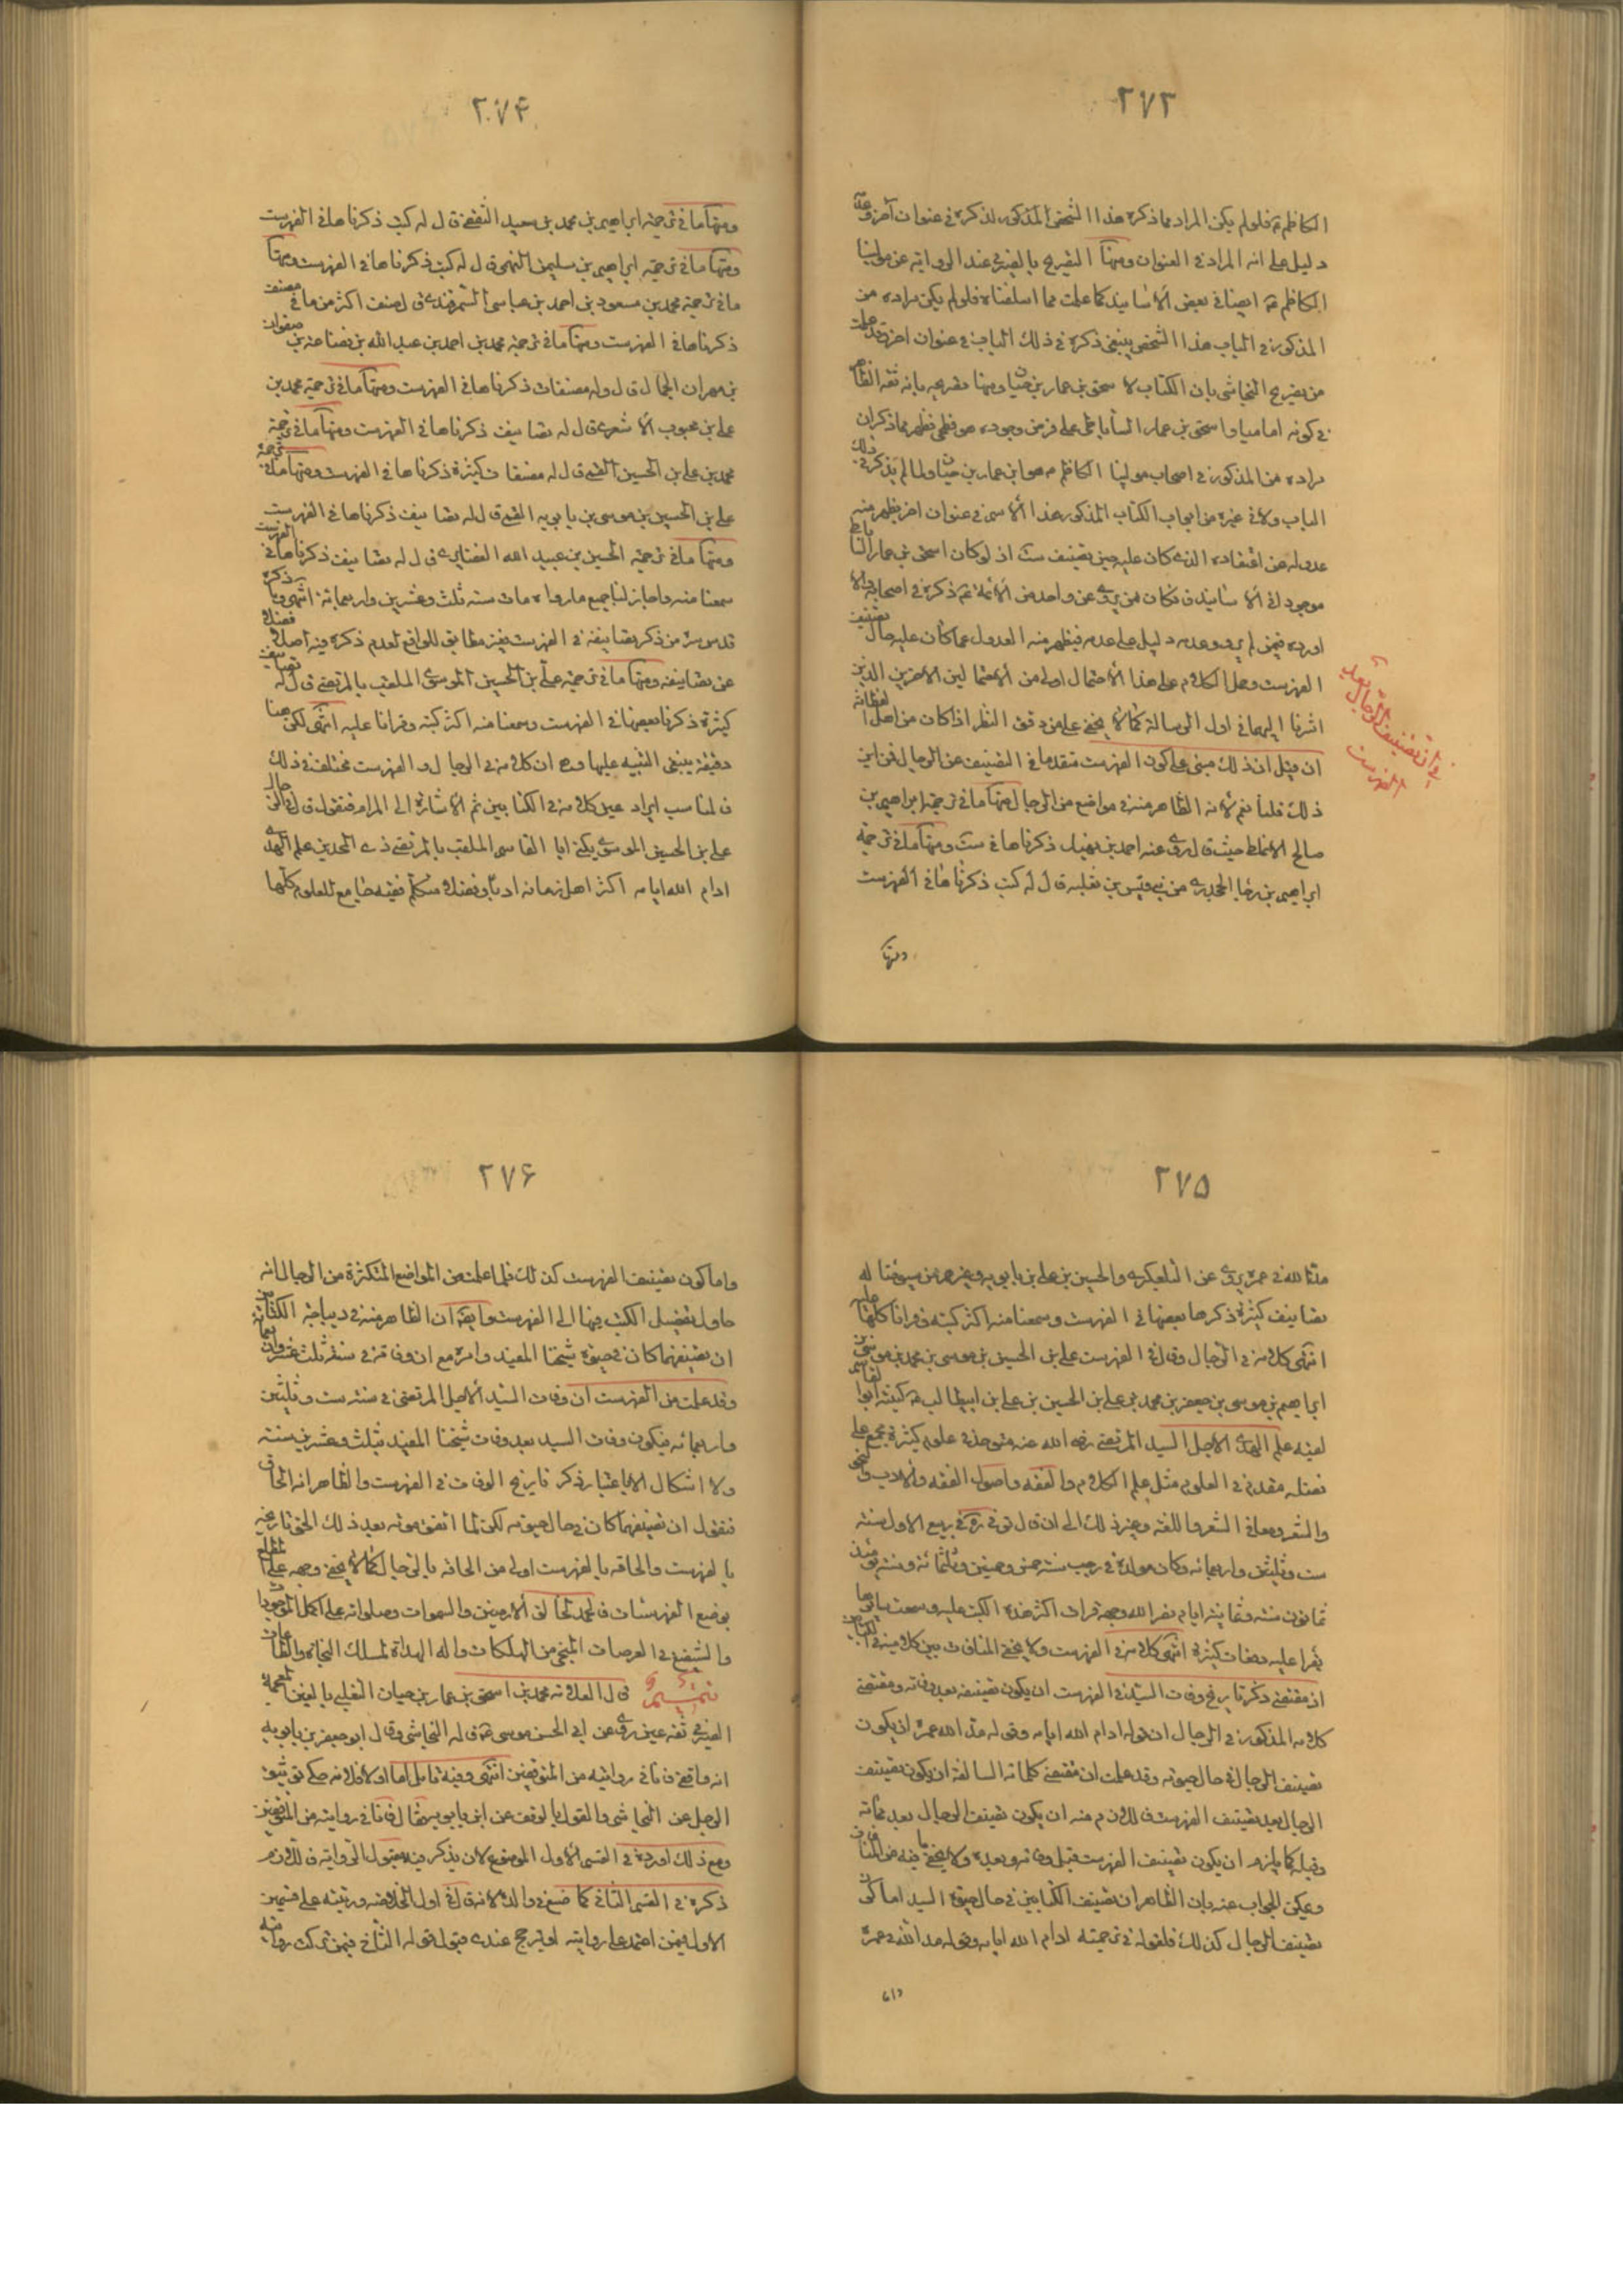 ٢٧٣
الكاظم ع فلو لم يكن المراد مما ذكره هذا الشخص المذكور لذكره في عنوان آخر وعدمه
دليل على انه المراد في العنوان ومنها التصريح بالصيرفي عند الرواية عن مولينا
الكاظم ع ايضا في بعض الأسانيد كما علمت مما اسلفناه فلو لم يكن مراده من
المذكور في الباب هذا الشخص ينبغي ذكره في ذلك الباب في عنوان اخر وقد علمت
من تصريح النجاشي بان الكتاب لاسحق بن عمار بن حيان ومنها تصريحه بانه ثقة الظاهر
في كونه اماميا واسحق بن عمار الساباطي على فرض وجوده هو فطحي فظهر مما ذكر ان
مراده من المذكور في اصحاب مولينا الكاظم ع هو ابن عمار بن حيان ولما لم يذكر في ذلك
الباب ولا في غيره من ابواب الكتاب المذكور هذا الأسم في عنوان اخر يظهر منه
عدوله عن اعتقاده الذي كان عليه حين تصنيف ست اذ لو كان اسحق بن عمار الساباطي
موجودا في الأسانيد فكان ممن يروي عن واحد من الأئمة ع ذكره في اصحابه والا
اورده فيمن لم يرو وعدمه دليل على عدمه فيظهر منه العدول عما كان عليه حال تصنيف
الفهرست وحمل الكلام على هذا الأحتمال اولى من الأحتمالين الاخرين الذين
اشرنا اليهما في اول الرسالة كما لا يخفى على من دقق النظر اذا كان من اهل الفطانة
ان قيل ان ذلك مبني على كون الفهرست متقدما في التصنيف عن الرجال فمن اين
ذلك قلنا نعم لأنه الظاهر منه في مواضع من الرجال منها ما في ترجمة ابراهيم بن
صالح الانماطي حيث قال روى عنه احمد بن نهيك ذكرناها في ست ومنها ما في ترجمة
ابراهيم بن رجا الجحدري من بني قيس بن ثعلبه قال له كتب ذكرناها في الفهرست
ومنها
في ان تصنيف الرجال بعد
الفهرست
٢٧۴
ومنها ما في ترجمة ابراهيم بن محمد بن سعيد الثقفي قال له كتب ذكرناها في الفهرست
ومنها ما في ترجمة ابراهيم بن سليمن النهمي قال له كتب ذكرناها في الفهرست ومنها
ما في ترجمة محمد بن مسعود بن احمد بن عياسي السمرقندي قال صنف اكثر من ماتي مصنف
ذكرناها في الفهرست ومنها ما في ترجمة محمد بن احمد بن عبد الله بن قضاعة بن صفوان
بن مهران الجمال قال وله مصنفات ذكرناها في الفهرست ومنها ما في ترجمة محمد بن
علي بن محبوب الأشعري قال له تصانيف ذكرناها في الفهرست ومنها ما في ترجمة
محمد بن علي بن الحسين القمي قال له مصنفات كثيرة ذكرناها في الفهرست ومنها ما في ترجمة
علي بن الحسين بن موسى بن بابويه القمي قال له تصانيف ذكرناها في الفهرست
ومنها ما في ترجمة الحسين بن عبيد الله الغضايري قال له تصانيف ذكرناها في الفهرست
سمعنا منه واجاز لنا جميع ما رواه مات سنه ثلث وعشرين واربعمائة انتهى وما ذكره
قدس سره من ذكر تصانيفه في الفهرست غير مطابق للواقع لعدم ذكره فيه اصلا فضلا
عن تصانيفه ومنها ما في ترجمة علي بن الحسين الموسوي الملقب بالمرتضى قال له تصانيف
كثيرة ذكرنا بعضها في الفهرست وسمعنا منه اكثر كتبه وقرانا عليه انتهى لكن هنا
دقيقة ينبغي التنبيه عليها وهي ان كلامه في الرجال والفهرست مختلف في ذلك
فالمناسب ايراد عين كلامه في الكتابين ثم الأشارة الى المرام فنقول قال في الرجال
علي بن الحسين الموسوي يكنى ابا القاسم الملقب بالمرتضى ذي المجدين علم الهدى
ادام الله ايامه اكثر اهل زمانه ادبا وفضلا متكلم فقيه جامع للعلوم كلها
٢٧۵
مد الله في عمره يروي عن التلعكبري والحسين بن علي بن بابويه وغيرهم من شيوخنا له
تصانيف كثيرة ذكرها بعضها في الفهرست وسمعنا منه اكثر كتبه وقرانا كلها عليه
انتهى كلامه في الرجال وقال في الفهرست علي بن الحسين بن موسى بن محمد بن موسى بن
ابراهيم بن موسى بن جعفر بن محمد بن علي بن الحسين بن علي بن ابيطالب ع كنيته ابو القاسم
لقبه علم الهدى الاجل السيد المرتضى رضي الله عنه متوحد في علوم كثيرة مجمع على
فضله مقدم في العلوم مثل علم الكلام والفقه واصول الفقه والأدب والنحو
والشعر ومعاني الشعر واللغه وغير ذلك الى ان قال توفي ره في ربيع الاول سنة
ست وثلثين واربعمائه وكان مولده في رجب سنه خمس وخمسين وثلثمائه وسنه يومئذ
ثمانون سنه وثمانية ايام نضر الله وجهه قرات اكثر هذه الكتب عليه وسمعت سايرها
يقرا عليه دفعات كثيرة انتهى كلامه في الفهرست ولا يخفى المنافاة بين كلاميه في الكتابين
اذ مقتضى ذكر تاريخ وفات السيد في الفهرست ان يكون تصنيفه بعد وفاته ومقتضى
كلامه المذكور في الرجال ان قوله ادام الله ايامه وقوله مد الله عمره ان يكون
تصنيف الرجال في حال حيوته وقد علمت ان مقتضى كلماته السالفة ان يكون تصنيف
الرجال بعد تصنيف الفهرست فاللازم منه ان يكون تصنيف الرجال بعد مماته
وقبله كما يلزم ان يكون تصنيف الفهرست قبل وفاته وبعده ولا يخفى ما فيه من المنافات
ويمكن الجواب عنه بان الظاهر ان تصنيف الكتابين في حال حيوة السيد اما كون
تصنيف الرجال كذلك فلقوله في ترجمته ادام الله ايامه وقوله مد الله في عمره
واما
٢٧۶
واما كون تصنيف الفهرست كذلك فلما علمت من المواضع المتكثرة من الرجال انه
حاول تفصيل الكتب فيها الى الفهرست وايضا ان الظاهر منه في ديباجة الكتابين
ان تصنيفهما كان في حيوة شيخنا المفيد وامره مع ان وفاته في سنة ثلث عشر واربعمائة
وقد علمت من الفهرست ان وفات السيد الأجل المرتضى في سنه ست وثلثين
واربعمائه فيكون وفات السيد بعد وفات شيخنا المفيد بثلث وعشرين سنة
ولا اشكال الا باعتبار ذكر تاريخ الوفات في الفهرست والظاهر انه الحاق
فنقول ان تصنيفهما كان في حال حيوته لكن لما اتفق موته بعد ذلك الحق تاريخه
بالفهرست والحاقه بالفهرست اولى من الحاقه بالرجال كما لا يخفى وجهه على المطلع
بوضع الفهرستات فالحمد لخالق الأرضين والسموات وصلواته على اكمل الموجودات
والشفيع في العرصات المنجي من الهلكات واله الهداة لمسلك النجاة والطاعات
تتميم قال العلامة محمد بن اسحق بن عمار بن حيان التغلبي بالغين المعجمة
الصيرفي ثقه عين روى عن ابي الحسن موسى ع قاله النجاشي وقال ابو جعفر بن بابويه
انه واقفي فانا في روايته من المتوقفين انتهى وفيه تامل اما اولا فلانه حكى توثيق
الرجل عن النجاشي والقول بالوقف عن ابن بابويه فقال فانا في روايته من المتوقفين
ومع ذلك اورده في القسم الأول الموضوع لان يذكر فيه مقبول الرواية فاللازم
ذكره في القسم الثاني كما صنع في والده لانه قال في اول الخلاصه ورتبته على قسمين
الاول فيمن اعتمد على روايته او يترجح عندي قبول قوله الثاني فيمن تركت روايته